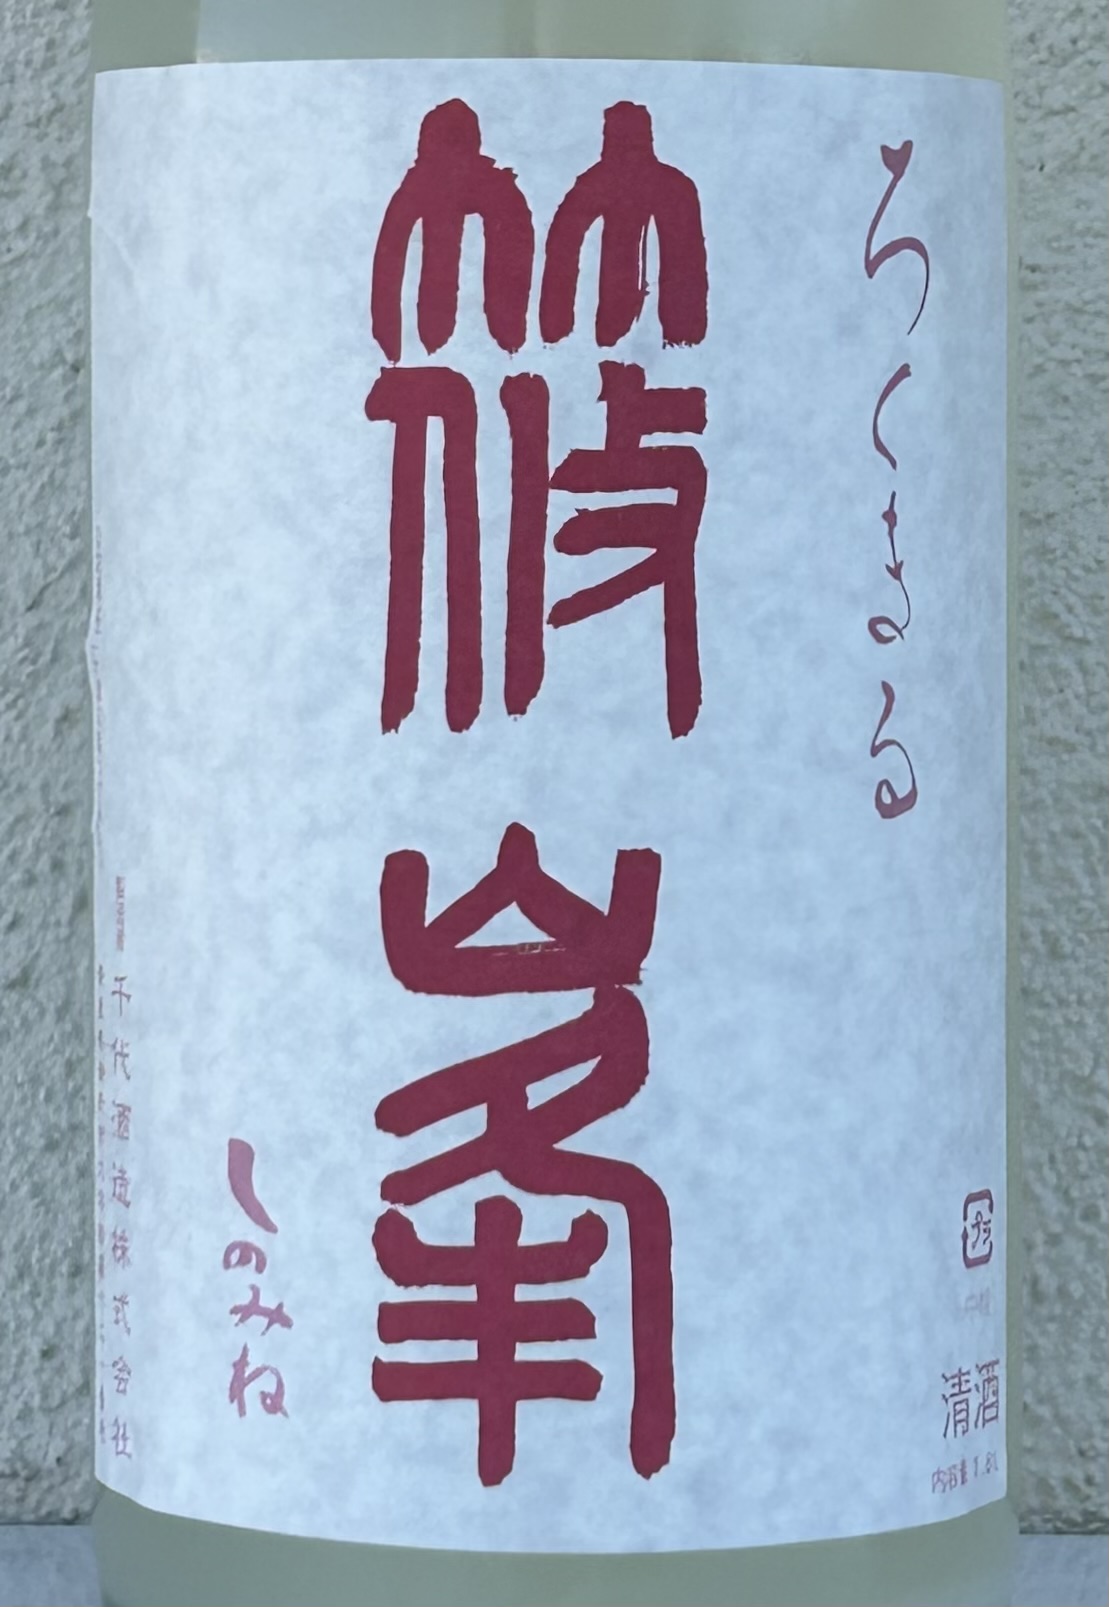 ろくまる
篠峯
しのみね
千代酒造株式会社
清酒
内容量1.8L